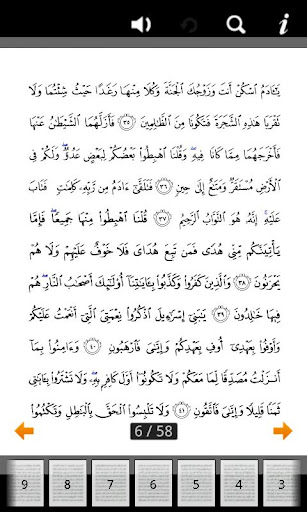 i
يَٰٓـَٔادَمُ ٱسْكُنْ أَنتَ وَزَوْجُكَ ٱلْجَنَّةَ وَكُلَا مِنْهَا رَغَدًا حَيْثُ شِئْتُمَا وَلَا
تَقْرَبَا هَٰذِهِ ٱلشَّجَرَةَ فَتَكُونَا مِنَ ٱلظَّٰلِمِينَ ٣٥ فَأَزَلَّهُمَا ٱلشَّيْطَٰنُ عَنْهَا
فَأَخْرَجَهُمَا مِمَّا كَانَا فِيهِ ۖ وَقُلْنَا ٱهْبِطُوا۟ بَعْضُكُمْ لِبَعْضٍ عَدُوٌّ ۖ وَلَكُمْ فِى
ٱلْأَرْضِ مُسْتَقَرٌّ وَمَتَٰعٌ إِلَىٰ حِينٍ ٣٦ فَتَلَقَّىٰٓ ءَادَمُ مِن رَّبِّهِۦ كَلِمَٰتٍ فَتَابَ
عَلَيْهِ ۚ إِنَّهُۥ هُوَ ٱلتَّوَّابُ ٱلرَّحِيمُ ٣٧ قُلْنَا ٱهْبِطُوا۟ مِنْهَا جَمِيعًا ۖ فَإِمَّا
يَأْتِيَنَّكُم مِّنِّى هُدًى فَمَن تَبِعَ هُدَاىَ فَلَا خَوْفٌ عَلَيْهِمْ وَلَا هُمْ
يَحْزَنُونَ ٣٨ وَٱلَّذِينَ كَفَرُوا۟ وَكَذَّبُوا۟ بِـَٔايَٰتِنَآ أُو۟لَٰٓئِكَ أَصْحَٰبُ ٱلنَّارِ ۖ هُمْ
فِيهَا خَٰلِدُونَ ٣٩ يَٰبَنِىٓ إِسْرَٰٓءِيلَ ٱذْكُرُوا۟ نِعْمَتِىَ ٱلَّتِىٓ أَنْعَمْتُ عَلَيْكُمْ
وَأَوْفُوا۟ بِعَهْدِىٓ أُوفِ بِعَهْدِكُمْ وَإِيَّٰىَ فَٱرْهَبُونِ ٤٠ وَءَامِنُوا۟ بِمَآ
أَنزَلْتُ مُصَدِّقًا لِّمَا مَعَكُمْ وَلَا تَكُونُوٓا۟ أَوَّلَ كَافِرٍۭ بِهِۦ ۖ وَلَا تَشْتَرُوا۟ بِـَٔايَٰتِى
ثَمَنًا قَلِيلًا وَإِيَّٰىَ فَٱتَّقُونِ ٤١ وَلَا تَلْبِسُوا۟ ٱلْحَقَّ بِٱلْبَٰطِلِ وَتَكْتُمُوا۟
6 / 58
9 8 7 6 5 4 3